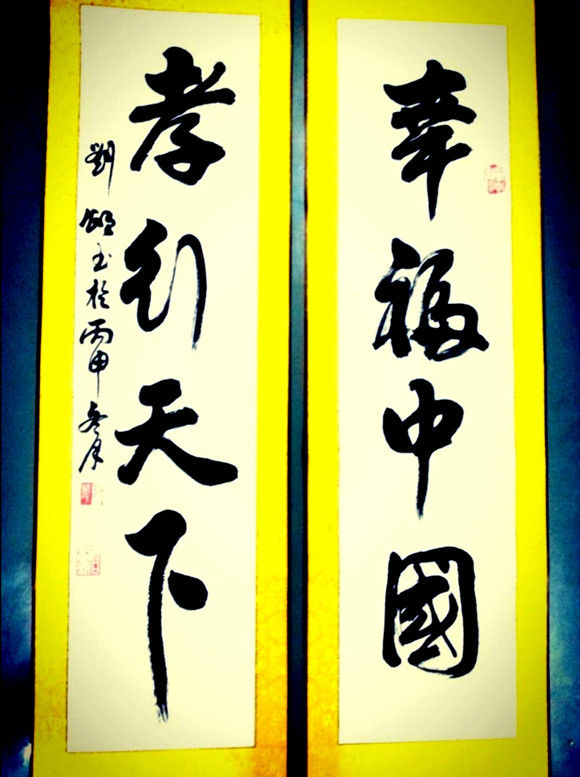 幸福中國
孝行天下
劉 玉於丙申冬月